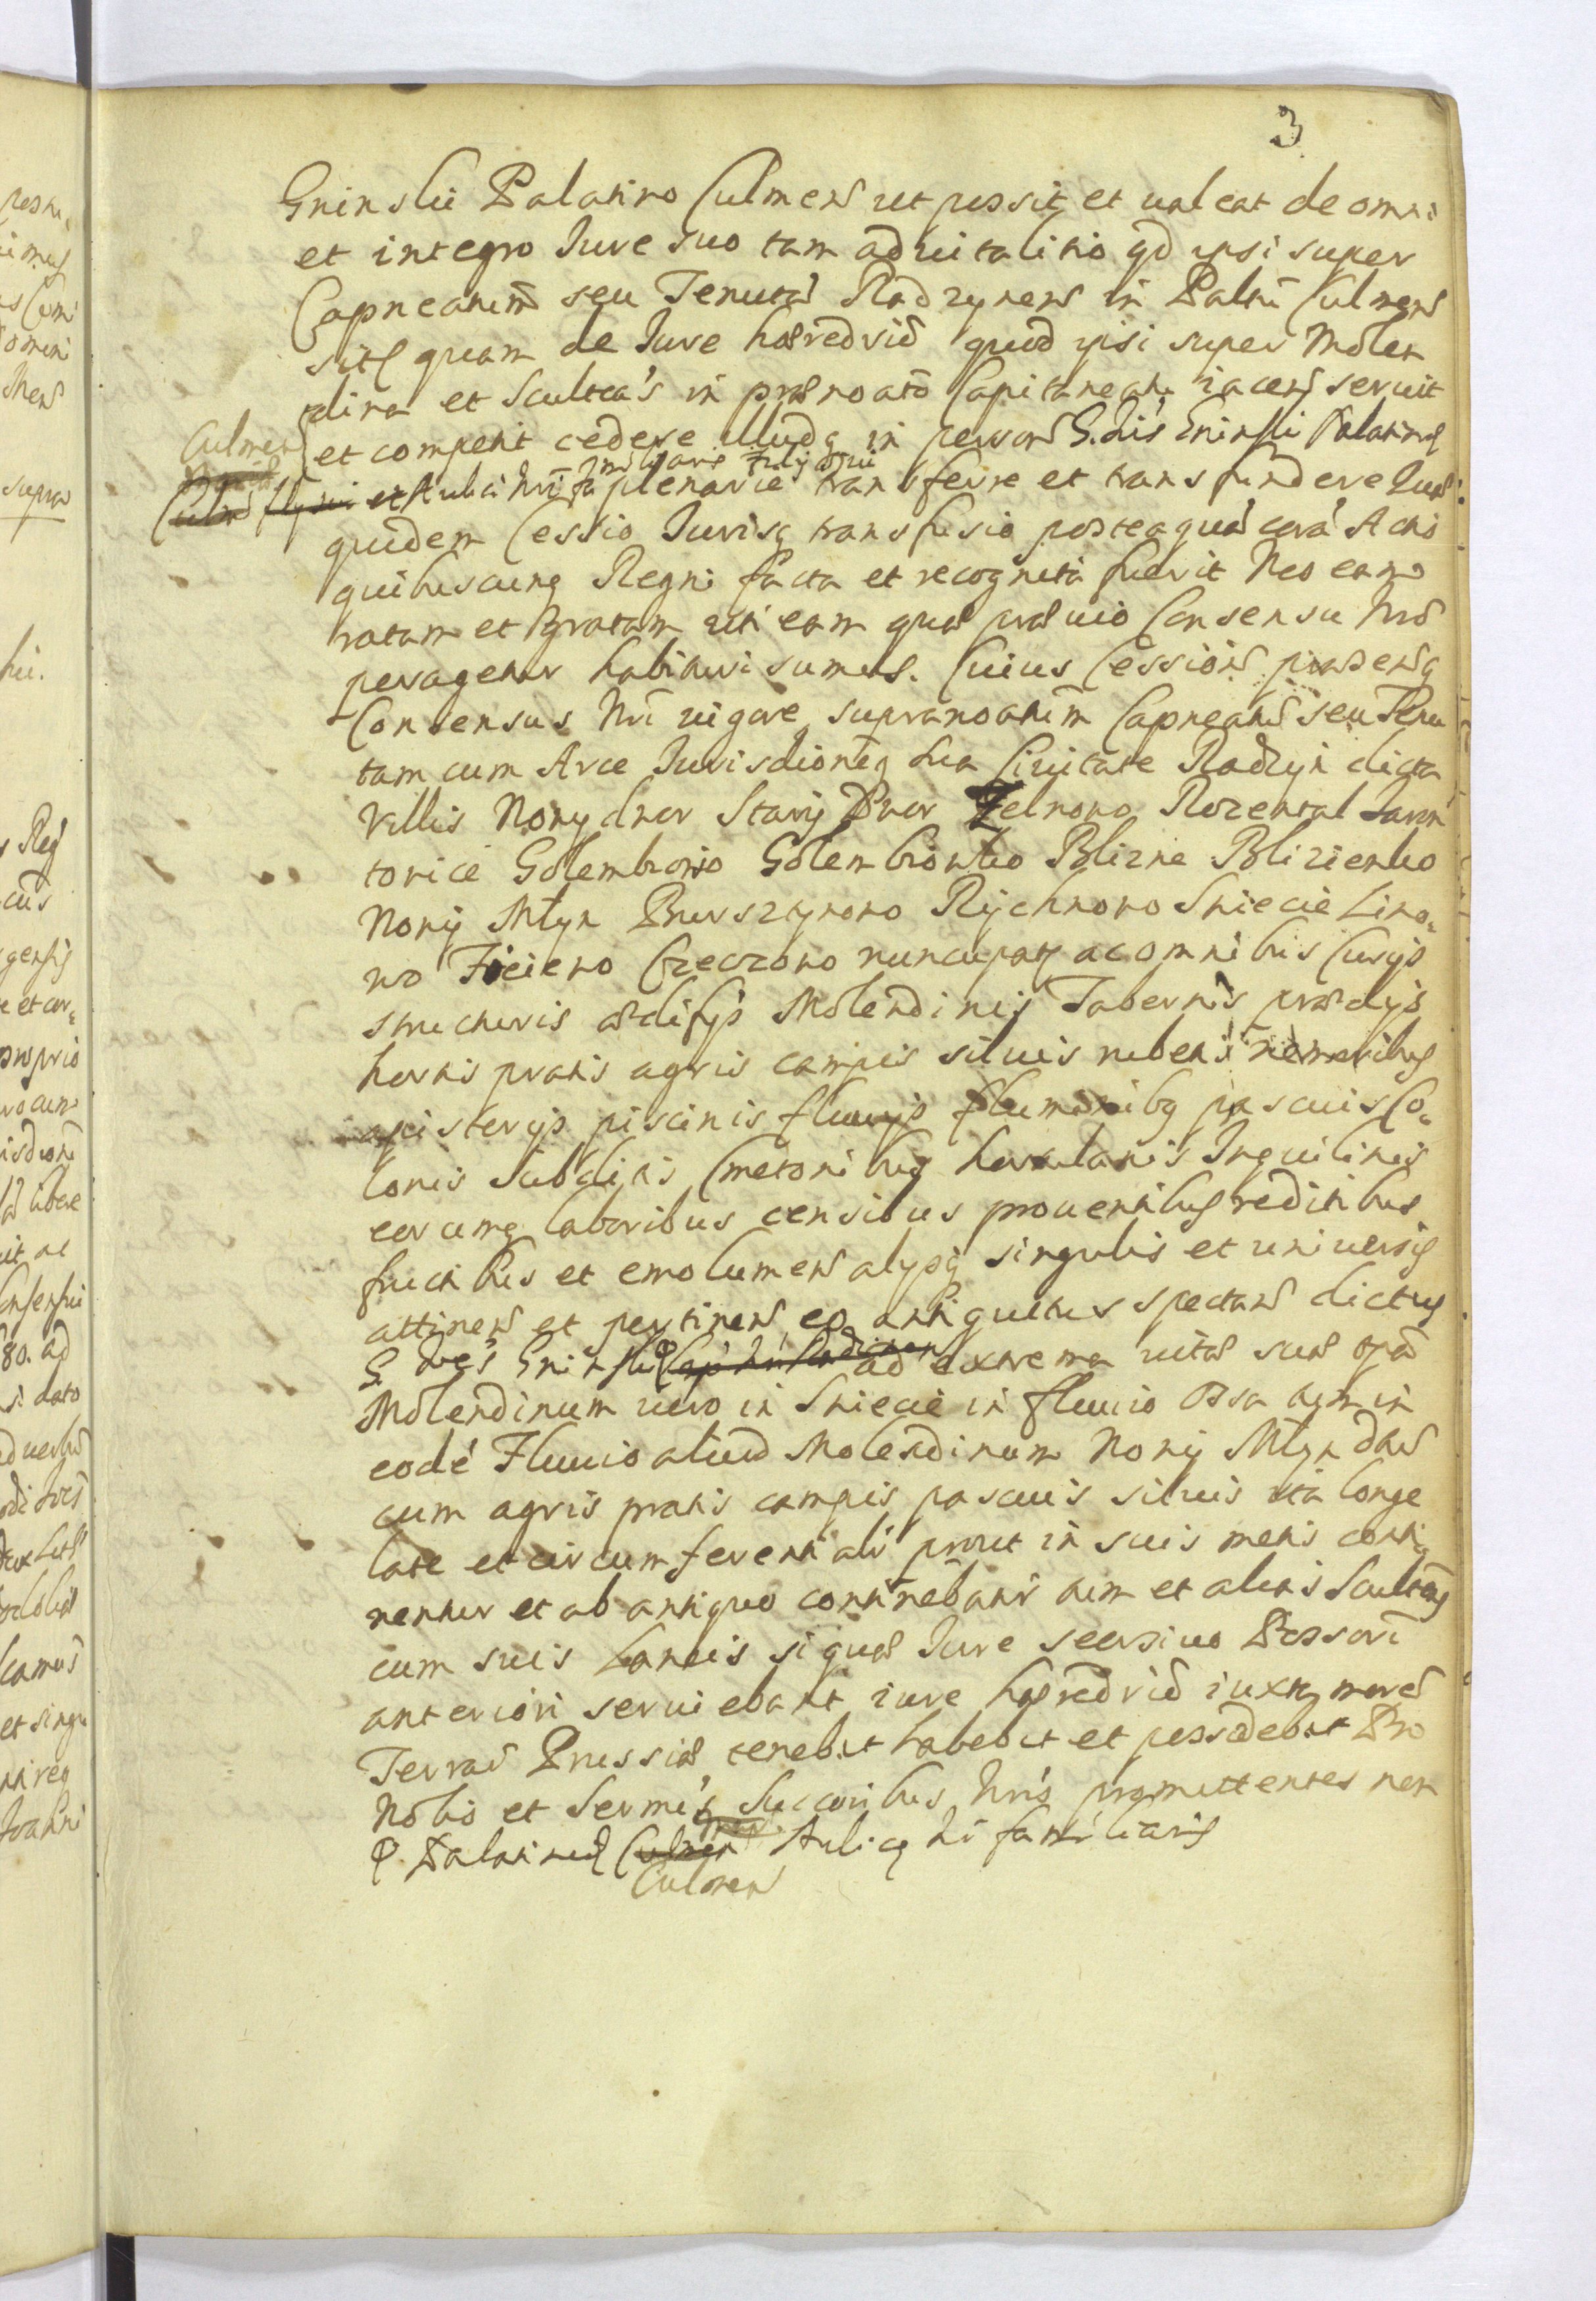 3
Gninskii Palatino Culmeñ ut possit et valeat de omni
et integro Jure suo tam advitalitio qd ipsi super
Capneatum seu Tenutã Radzyneñ in Palttu Culmeñ
sitg quam de Jure hæredrio quod ipsi super Molen
dina et Scultea's in prænoato Capitaneatu iaceñ servit
Culmeñ et competit cedere illudq in person G. Lis Gninskii Palatinus
et Aulici Nri familiaris plenarie transferre et transfundere Quæ
quidem Cessio Jurisq transfusio posteaquã corã Actis
quibuscunq Regni facta et recognita fuerit Nos eam
ratam et gratam uti eam quæ prævio Consensu Nro
peragetur habituri sumus. Cuius Cessionis præsensq
Consensus Nri vigore supranoatum Capneatũ seu Tenu
tam cum Arce Jurisdioneq sua Civitate Radzyn dicta
Villis Nowy dwor Stary Dwor Zelnowo Rozental Jaren
towice Golembiowo Golembiowko Blizne Blizienko
Nowy Młyn Pruszynowo Rychnowo Sniecie Lino
wo Ficiewo Czeczowo nuncupatg ac omnibus Curijs
structuris ædifijs Molendinis Tabernis prædijs
hortis pratis agris campis silvis rubetis nemoribus
apisterijs piscinis fluvijs fluminibq pascuis Co
lonis Subditis Cmetonibus hortulanis Inquilinis
eorumq laboribus censibus proventibus reditibus
fructibus et emolumeñ alijsq singulis et universis
attineñ et pertineñ eo antiquitus spectañ dictus
G. Gninskii ad extrema vitæ suæ tpa
Molendinum vero in Sniecie in fluvio Ossa tum in
eodé Fluvio aliud Molendinum Nowy Młyn dictũ
cum agris pratis campis pascuis silvis ita longe
late et circumferentiali prout in suis metis conti
nentur et ab antiquo continebantr tum et alias Sculteas
cum suis Laneis si quæ Jure seorsivo Possori
anteriori serviebant iure hæredrio iuxta morẽ
Terrarũ Prussiæ tenebit habebit et possidebit Pro
Nobis et Sermis Succoribus Nris promittentes non
P. Palatinus Aulicq Nri familiaris
Culmeñ